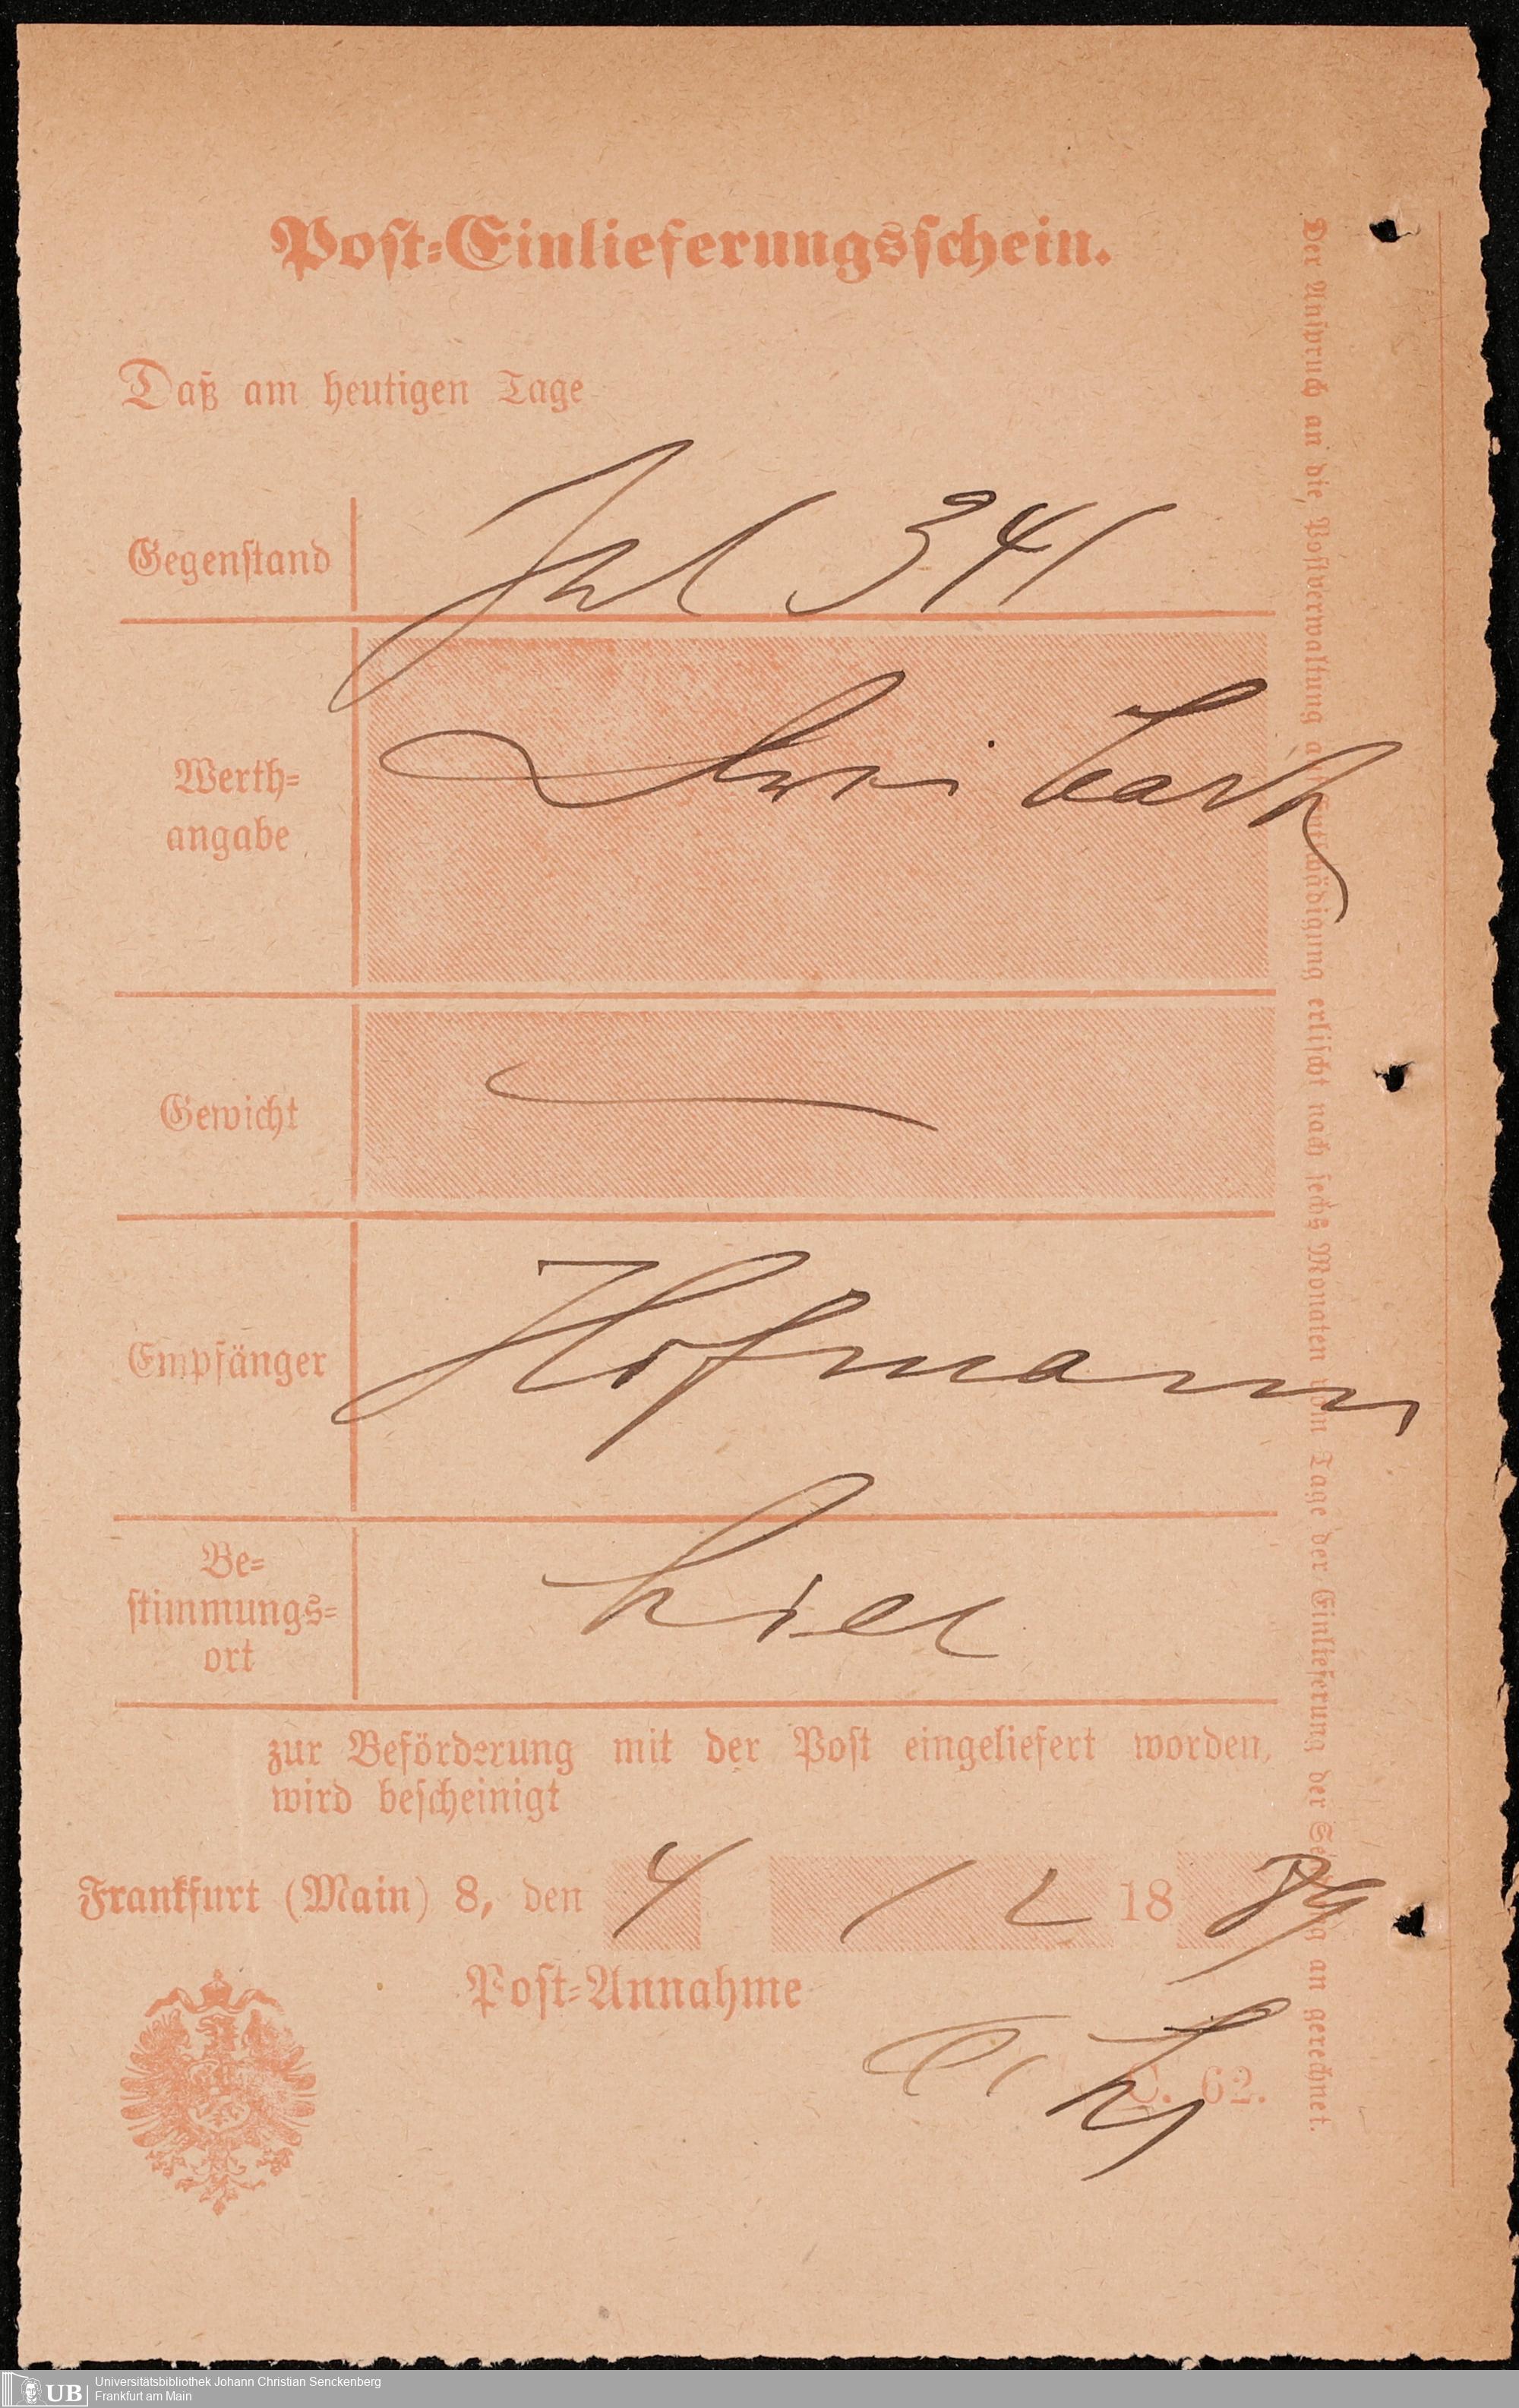 Post-Einlieferungsschein.
Daß am heutigen Tage
Gegenstand
341
Werth-
angabe
Gewicht
Empfänger
Hofmann
Be-
stimmungs-
ort
hier
zur Beförderung mit der Post eingeliefert worden,
wird bescheinigt
Frankfurt (Main) 8, den 4 12 1889
Post-Annahme
C. 62.
Der Anspruch an die Postverwaltung auf Entschädigung erlischt nach sechs Monaten vom Tage der Einlieferung der Sendung an gerechnet.
UB
Universitätsbibliothek Johann Christian Senckenberg
Frankfurt am Main